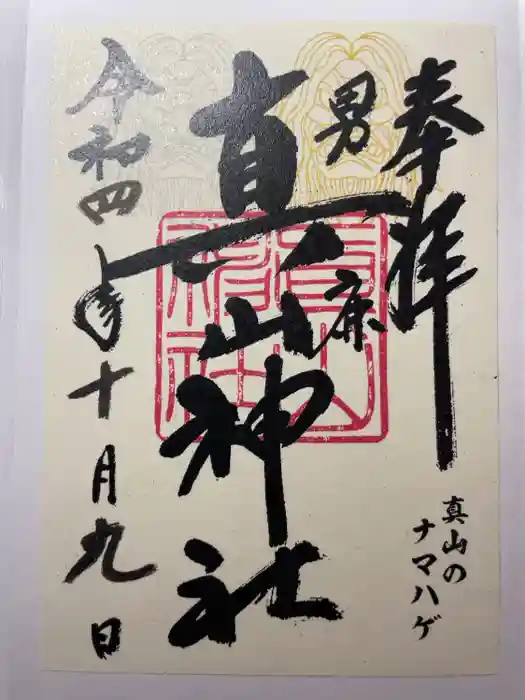 奉拝
男鹿
真山神社
令和四年十月九日
真山の
ナマハゲ